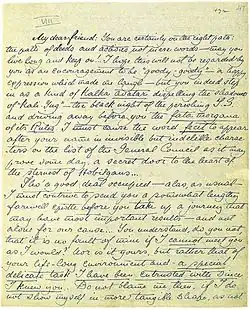 My dear friend. You are certainly on the right path;
the path of deeds and actions, not mere words — may you
live long and keep on! I hope this will not be regarded by
you as an encouragement to be "goody goody" — a happy
expression which made me laugh — but you indeed step
in as a kind of Kalki Avatar dispelling the shadows
of "Kali-yug" — the black night of the perishing T.S.
and driving away before you the fata morgana
of its Rules. I must cause the word fecit to appear
after your name in invisible but indelible charac-
ters on the list of the General Council as it may
prove some day, a secret door to the heart of
the sternest of Hobilgans...
Tho' a good deal occupied — alas as usual —
I must contrive to send you a somewhat lengthy
farewell epistle before you take up a journey that
may have most important results — and not
alone for our cause... You understand, do you not
that it is no fault of mine if I cannot meet you
as I would? Nor is it yours, but rather that of
your life-long environment and a special
delicate task I have been entrusted with since
I knew you. Do not blame me then, if I do
not show myself in more tangible shape, as not